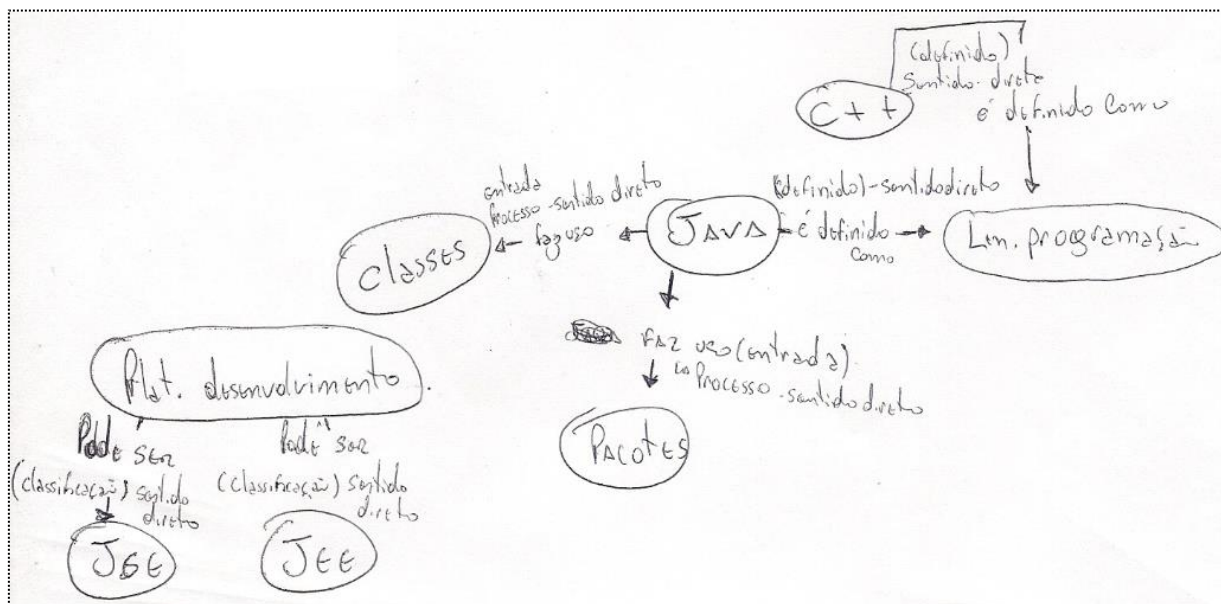 (definido)
Sentido-direto
C++
é definido como
entrada
Processo-sentido direto
(definido)-sentido direto
classes
faz uso
JAVA
é definido
como
Lin. programação
faz uso (entrada)
Processo-sentido direto
Pacotes
Plat. desenvolvimento
Pode ser
(classificação) sentido
direto
JSE
Pode ser
(classificação) sentido
direto
JEE